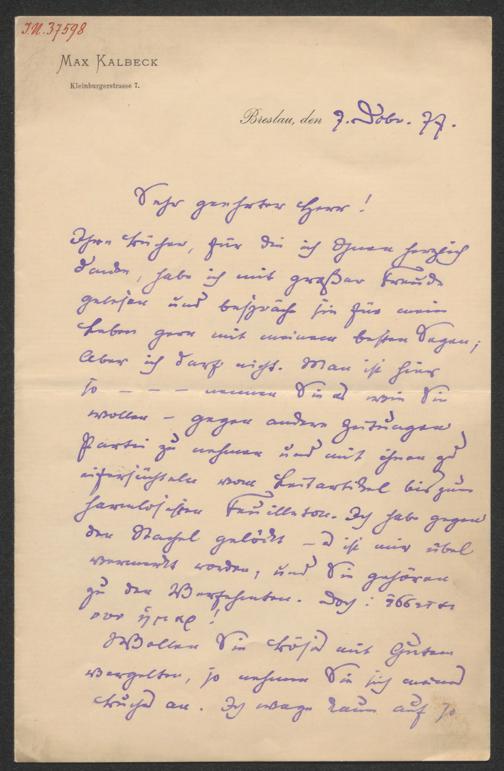 I.N. 37598
MAX KALBECK
Kleinburgerstrasse 7.
Breslau, den 7. Dbr. 77.
Sehr geehrter Herr!
Ihre Bücher, für die ich Ihnen herzlich
danke, habe ich mit großer Freude
gelesen und bespräche sie für mein
Leben gern mit meinem besten Segen;
Aber ich darf nicht. Man ist hier
so – – – nennen Sie es wie Sie
wollen – gegen andere Zeitungen
Partei zu nehmen und mit ihnen zu
eifersüchteln vom Leitartikel bis zum
harmlosesten Feuilleton. Ich habe gegen
den Stachel gelökt – es ist mir übel
vermerkt worden, und Sie gehören
zu den Verfehmten. Doch: ἔσσεται
ἦμαρ!
Wollen Sie Böses mit Gutem
vergelten, so nehmen Sie sich meines
Buches an. Ich wage kaum auf so